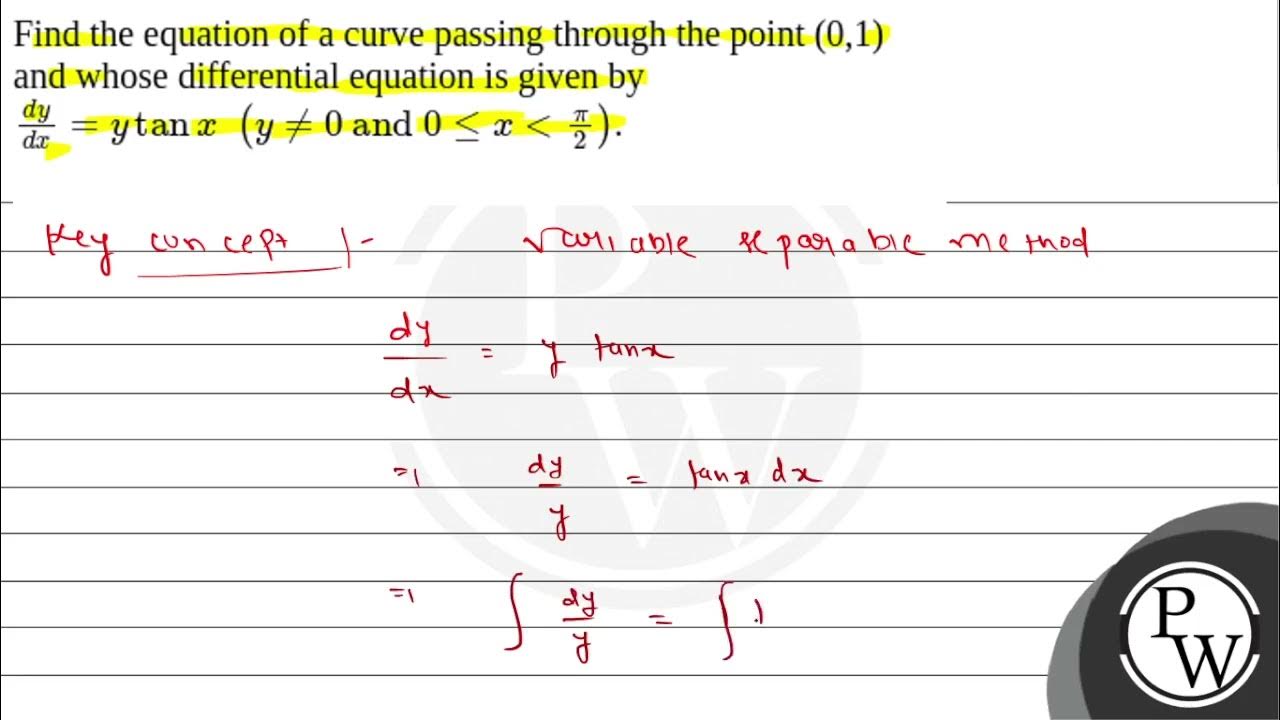 Find the equation of a curve passing through the point (0,1)
and whose differential equation is given by
dy/dx = y tan x (y ≠ 0 and 0 ≤ x < π/2).
Key concept :- Variable separable method
dy/dx = y tanx
⇒ dy/y = tanx dx
⇒ ∫ dy/y = ∫
PW
PW